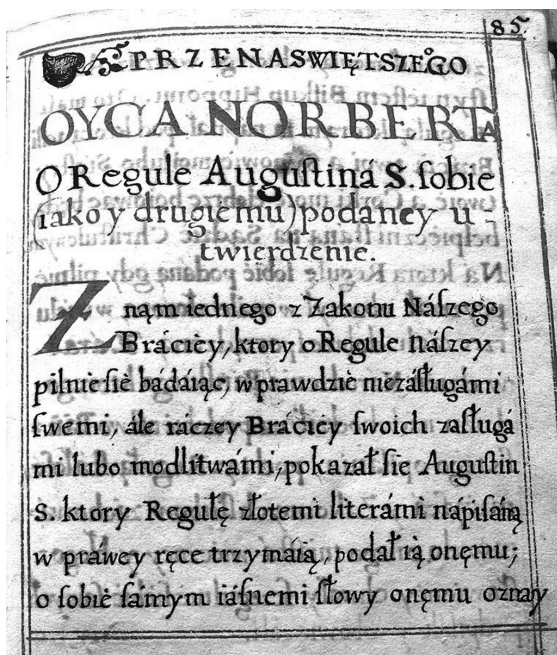 85.
PRZENASWIĘTSZEGO
OYCA NORBERTA
O Regule Auguſtiná S. ſobie
(iako y drugiemu) podáney u-
twierdzenie.
Znąm iednego z Zakonu Náſzego
Bráciéy, ktory o Regule náſzey
pilnie ſié bádáiąc, wprawdzié niezáſługámi
ſwemi, ále ráczey Bráciey ſwoich zaſługá
mi lubo modlitwámi, pokazał ſie Auguſtin
S. ktory Regułę złotemi literámi nápiſáną
w práwey ręce trzymaią, podał ią onęmu;
o ſobié ſámym iáſnemi ſłowy onęmu oznay